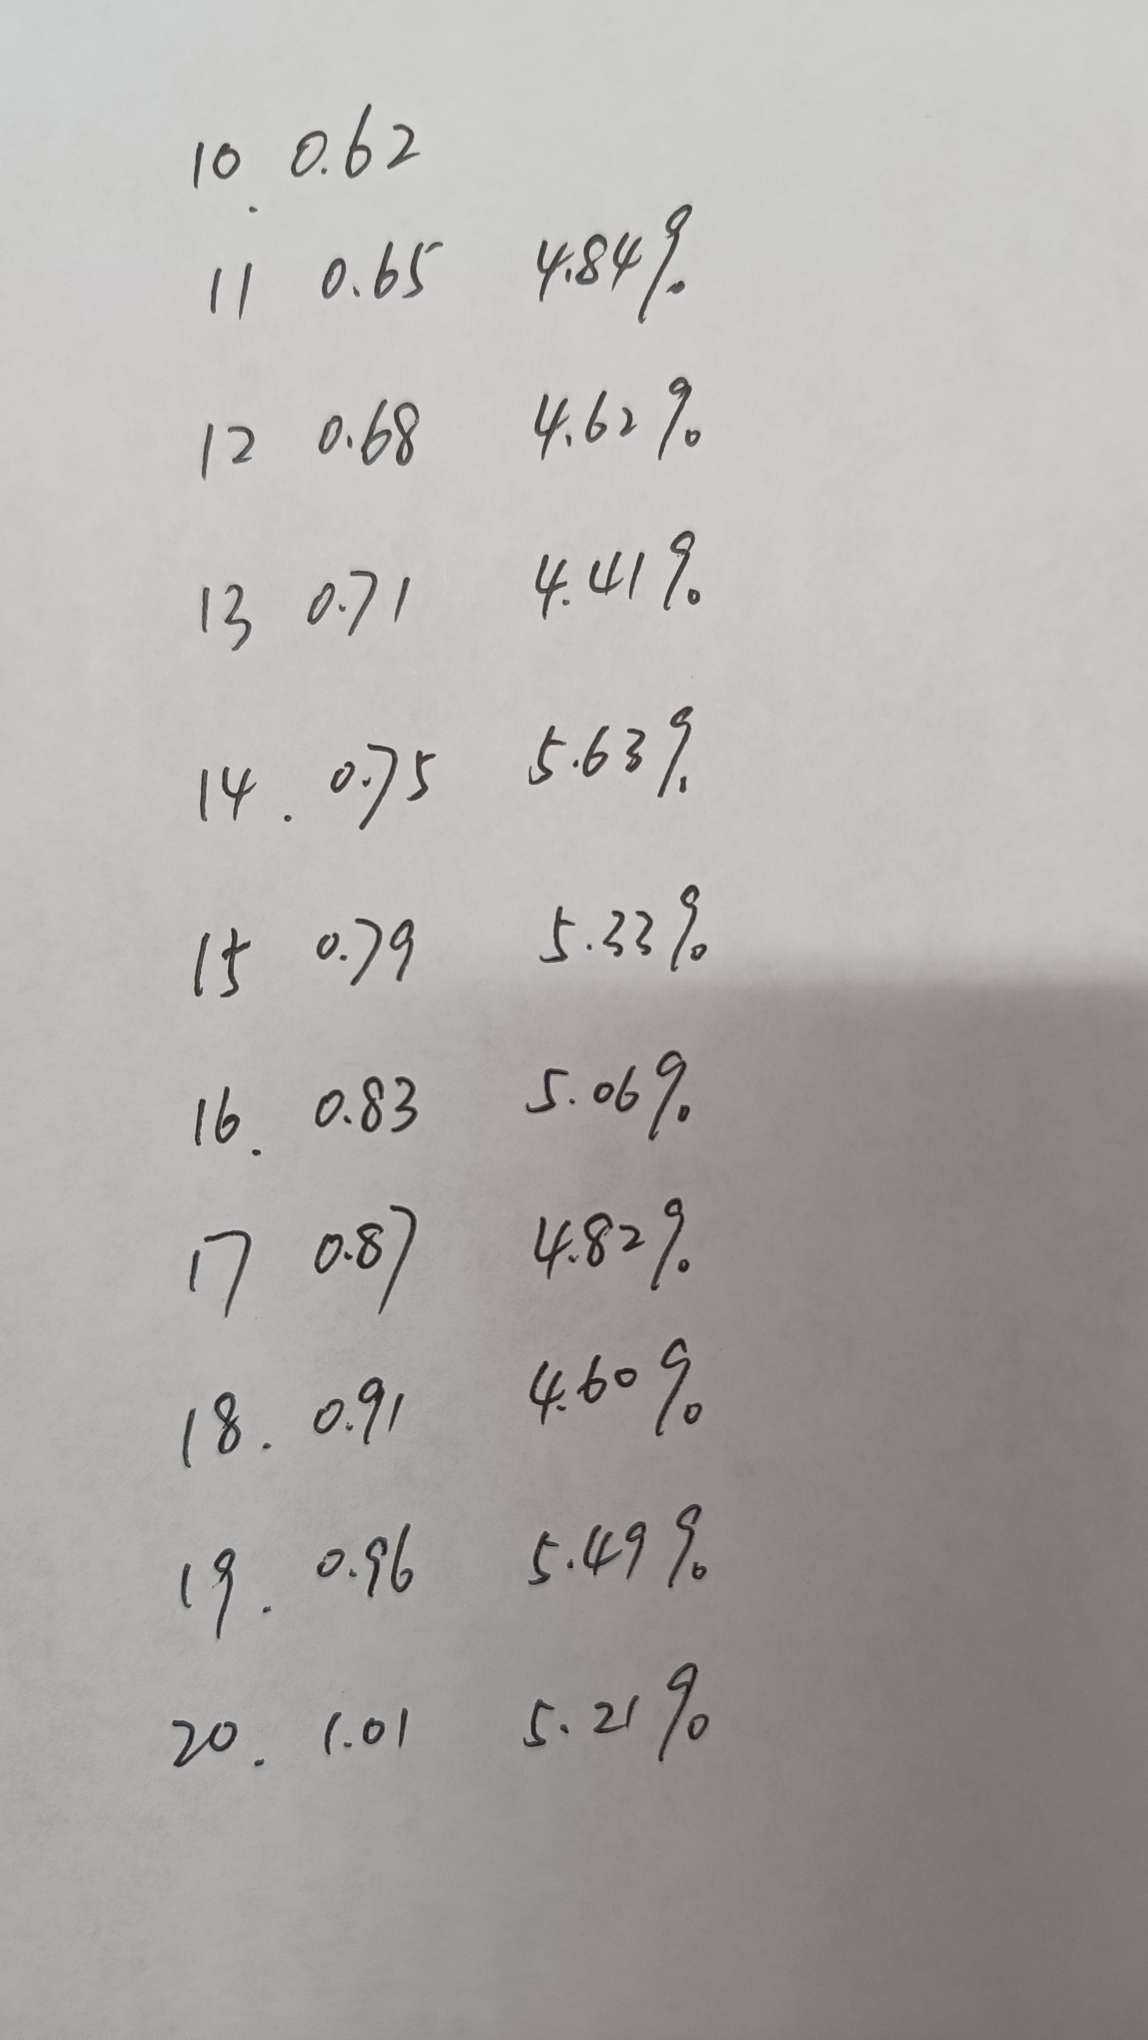 10. 0.62
11 0.65 4.84%
12 0.68 4.62%
13 0.71 4.41%
14. 0.75 5.63%
15 0.79 5.33%
16. 0.83 5.06%
17 0.87 4.82%
18. 0.91 4.60%
19. 0.96 5.49%
20. 1.01 5.21%